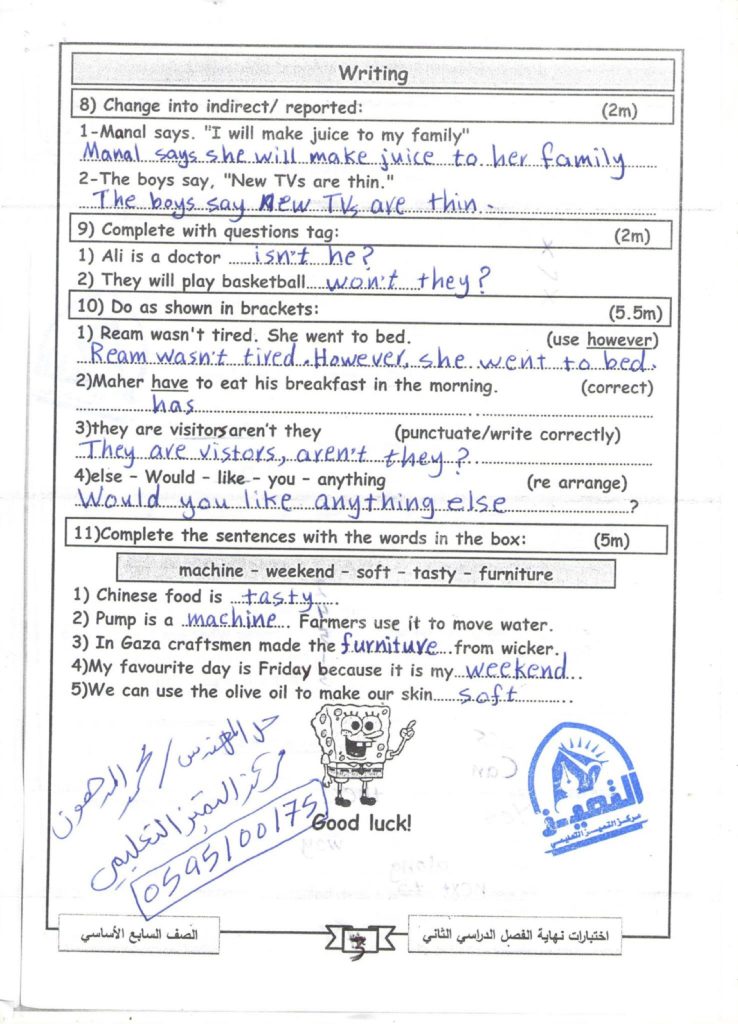 Writing
8) Change into indirect/ reported: (2m)
1-Manal says. "I will make juice to my family"
Manal says she will make juice to her family
2-The boys say, "New TVs are thin."
The boys say New TVs are thin.
9) Complete with questions tag: (2m)
1) Ali is a doctor isn't he?
2) They will play basketball won't they?
10) Do as shown in brackets: (5.5m)
1) Ream wasn't tired. She went to bed. (use however)
Ream wasn't tired. However, she went to bed.
2)Maher have to eat his breakfast in the morning. (correct)
has
3)they are visitors aren't they (punctuate/write correctly)
They are vistors, aren't they?
4)else - Would - like - you - anything (re arrange)
Would you like anything else ?
11)Complete the sentences with the words in the box: (5m)
machine - weekend - soft - tasty - furniture
1) Chinese food is tasty
2) Pump is a machine. Farmers use it to move water.
3) In Gaza craftsmen made the furniture from wicker.
4)My favourite day is Friday because it is my weekend
5)We can use the olive oil to make our skin soft
حل المهندس / محمد المدهون
مركز التميز التعليمي
0595100175
Good luck!
التميز
مركز التميز التعليمي
الصف السابع الأساسي
3
اختبارات نهاية الفصل الدراسي الثاني